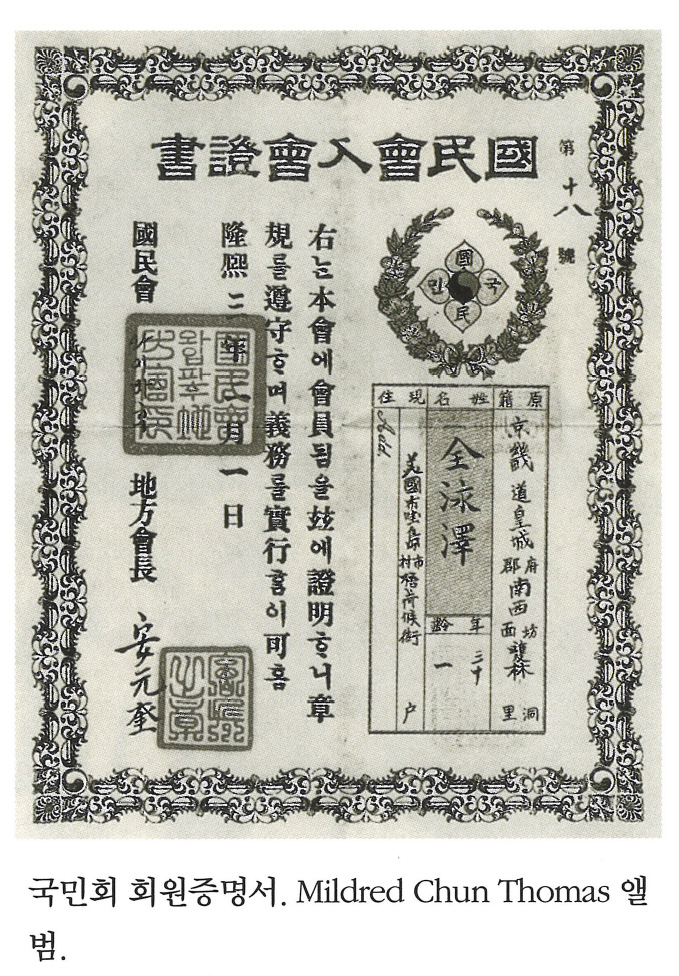 國民會入會證書
第十八號
國
국
민
民
原籍
京畿道皇城府郡南西坊面
洞里
姓名
全泳澤
年齡
三十一
現住
美國
市村
街
戶
右ᄂᆞᆫ本會에會員됨을玆에證明ᄒᆞ니章
規를遵守ᄒᆞ며義務를實行홈이可홈
隆熙三年二月一日
國民會
地方會長 安元奎
국민회 회원증명서. Mildred Chun Thomas 앨
범.